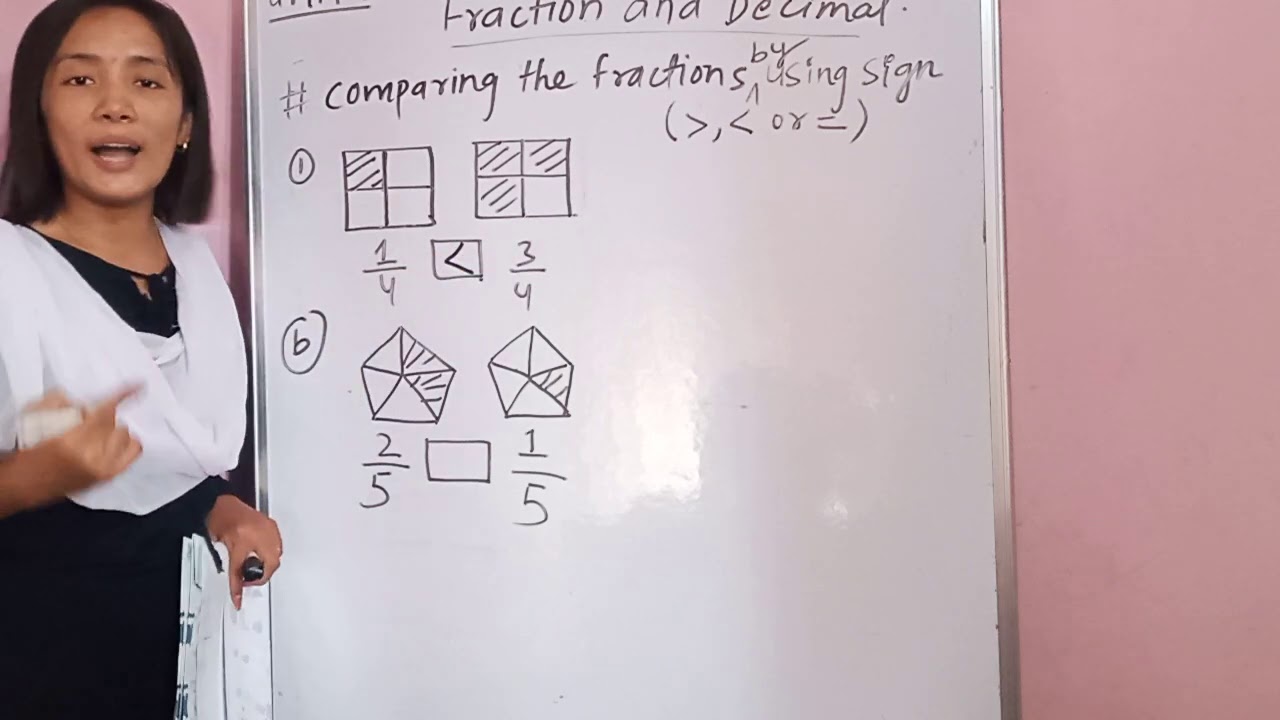 Fraction and Decimal.
# comparing the fractions by using sign
(>, < or =)
①
1/4 < 3/4
ⓑ
2/5 1/5